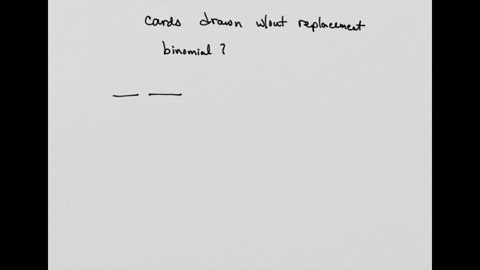 cards drawn w/out replacement
binomial ?